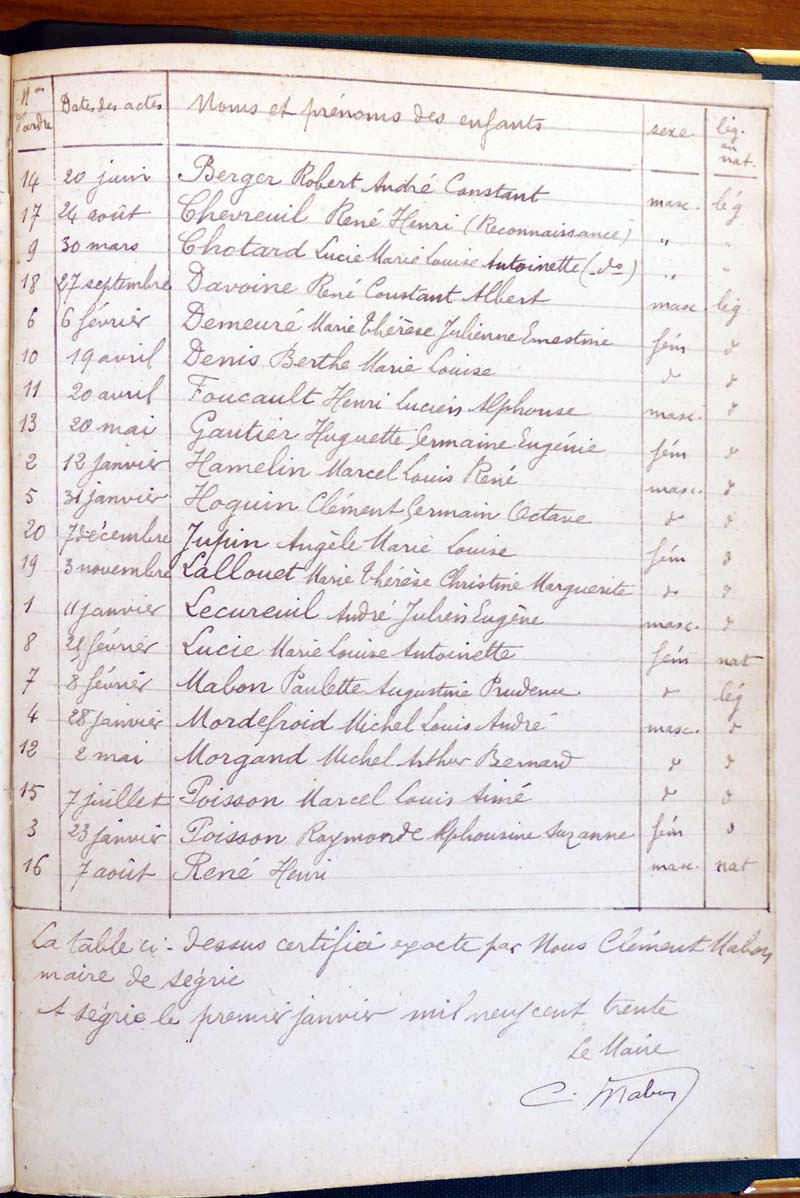 Nos d'ordre Dates des actes Noms et prénoms des enfants sexe lég. ou nat.
14 20 juin Berger Robert André Constant masc. lég
17 24 août Chevreuil René Henri (Reconnaissance) " "
9 30 mars Chotard Lucie Marie Louise Antoinette (do) " "
18 27 septembre Davoine René Constant Albert masc lég
6 6 février Demeuré Marie Thérèse Julienne Ernestine fém d
10 19 avril Denis Berthe Marie Louise d d
11 20 avril Foucault Henri Lucien Alphonse masc. d
13 20 mai Gautier Huguette Germaine Eugénie fém d
2 12 janvier Hamelin Marcel Louis René masc. d
5 31 janvier Hoguin Clément Germain Octave d d
20 7 décembre Jupin Angèle Marie Louise fém d
19 3 novembre Lallouet Marie Thérèse Christine Marguerite d d
1 11 janvier Lecureuil André Julien Eugène masc. d
8 février Lucie Marie Louise Antoinette fém nat
7 8 février Mabon Paulette Augustine Prudence d lég
4 28 janvier Mordefroid Michel Louis André masc. d
12 2 mai Morgand Michel Arthur Bernard d d
15 7 juillet Poisson Marcel Louis Aimé d d
3 23 janvier Poisson Raymonde Alphonsine Suzanne fém d
16 7 août René Henri masc. nat
La table ci-dessus certifiée exacte par Nous Clément Mabon
maire de Ségrie
A Ségrie le premier janvier mil neuf cent trente
Le Maire
C. Mabon